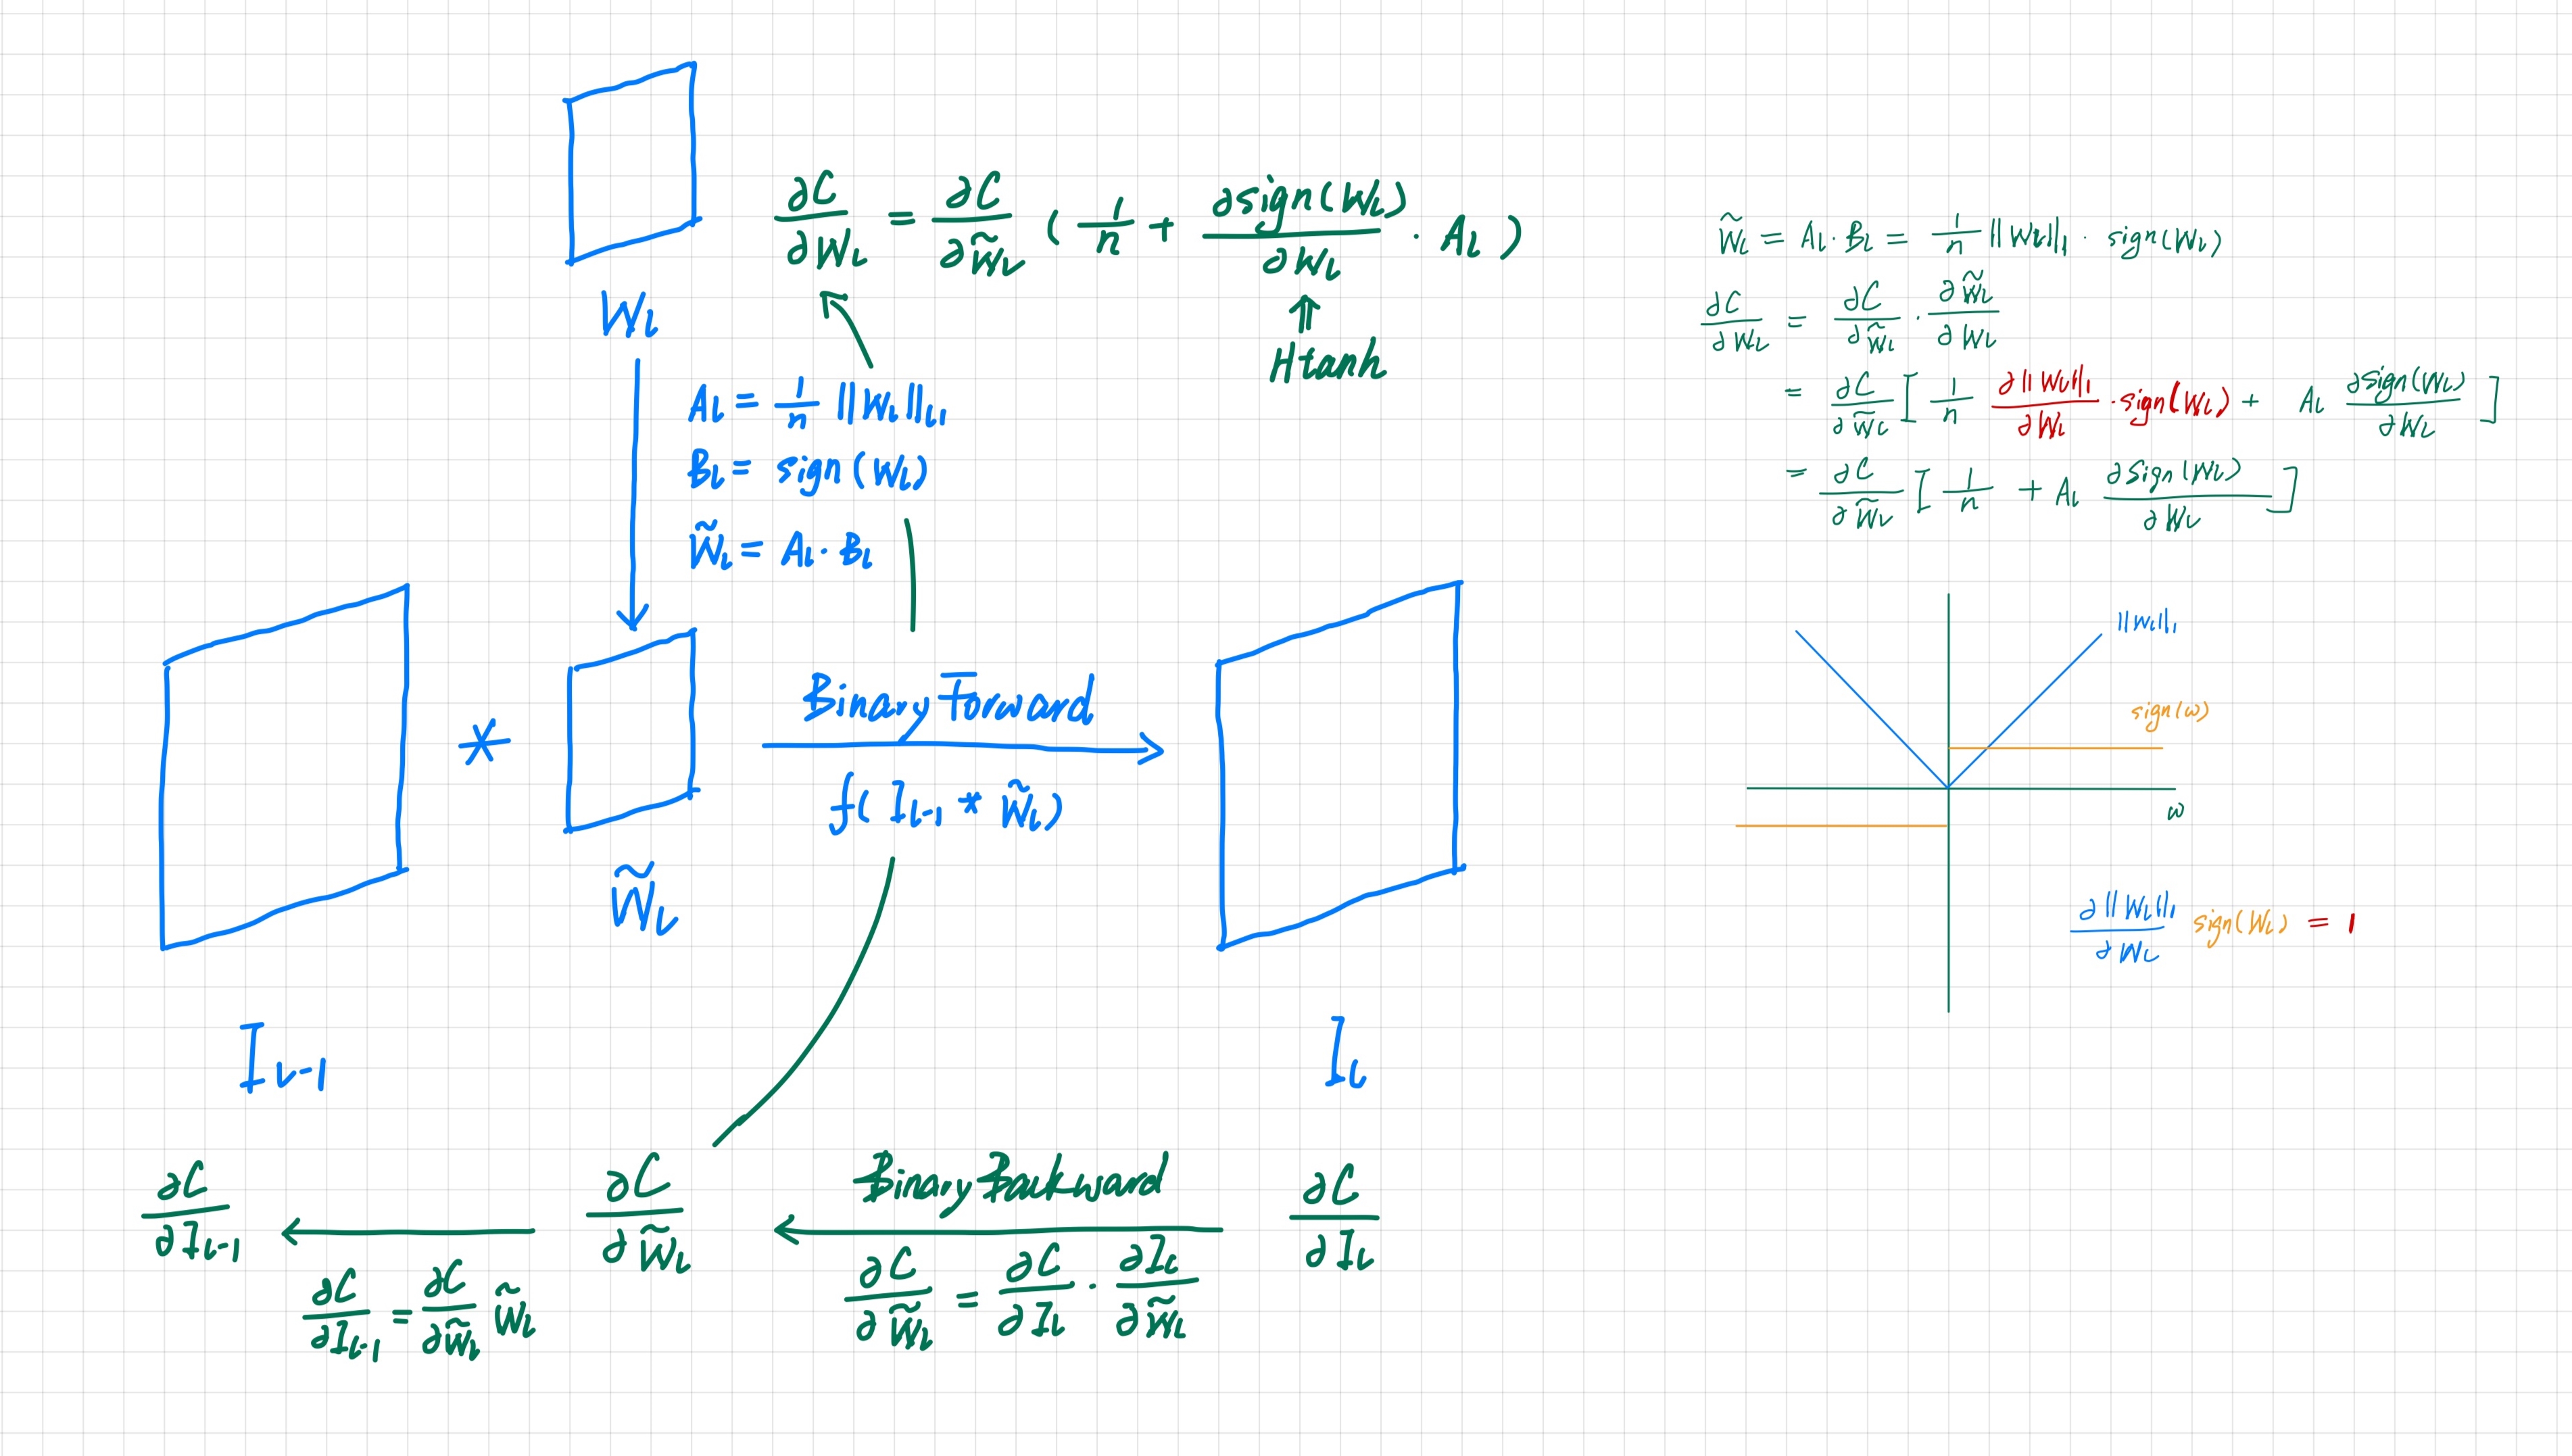 ∂C/∂W_l = ∂C/∂W̃_l ( 1/n + ∂sign(W_l)/∂W_l · A_l )
W_l
Htanh
A_l = 1/n ||W_l||_l1
B_l = sign(W_l)
W̃_l = A_l · B_l
*
Binary Forward
f( I_l-1 * W̃_l )
W̃_l
I_l-1
I_l
∂C/∂I_l-1
∂C/∂I_l-1 = ∂C/∂W̃_l W̃_l
∂C/∂W̃_l
Binary Backward
∂C/∂W̃_l = ∂C/∂I_l · ∂I_l/∂W̃_l
∂C/∂I_l
W̃_l = A_l · B_l = 1/n ||W_l||_1 · sign(W_l)
∂C/∂W_l = ∂C/∂W̃_l · ∂W̃_l/∂W_l
= ∂C/∂W̃_l [ 1/n ∂||W_l||_1/∂W_l · sign(W_l) + A_l ∂sign(W_l)/∂W_l ]
= ∂C/∂W̃_l [ 1/n + A_l ∂sign(W_l)/∂W_l ]
||W_l||_1
sign(ω)
ω
∂||W_l||_1/∂W_l sign(W_l) = 1